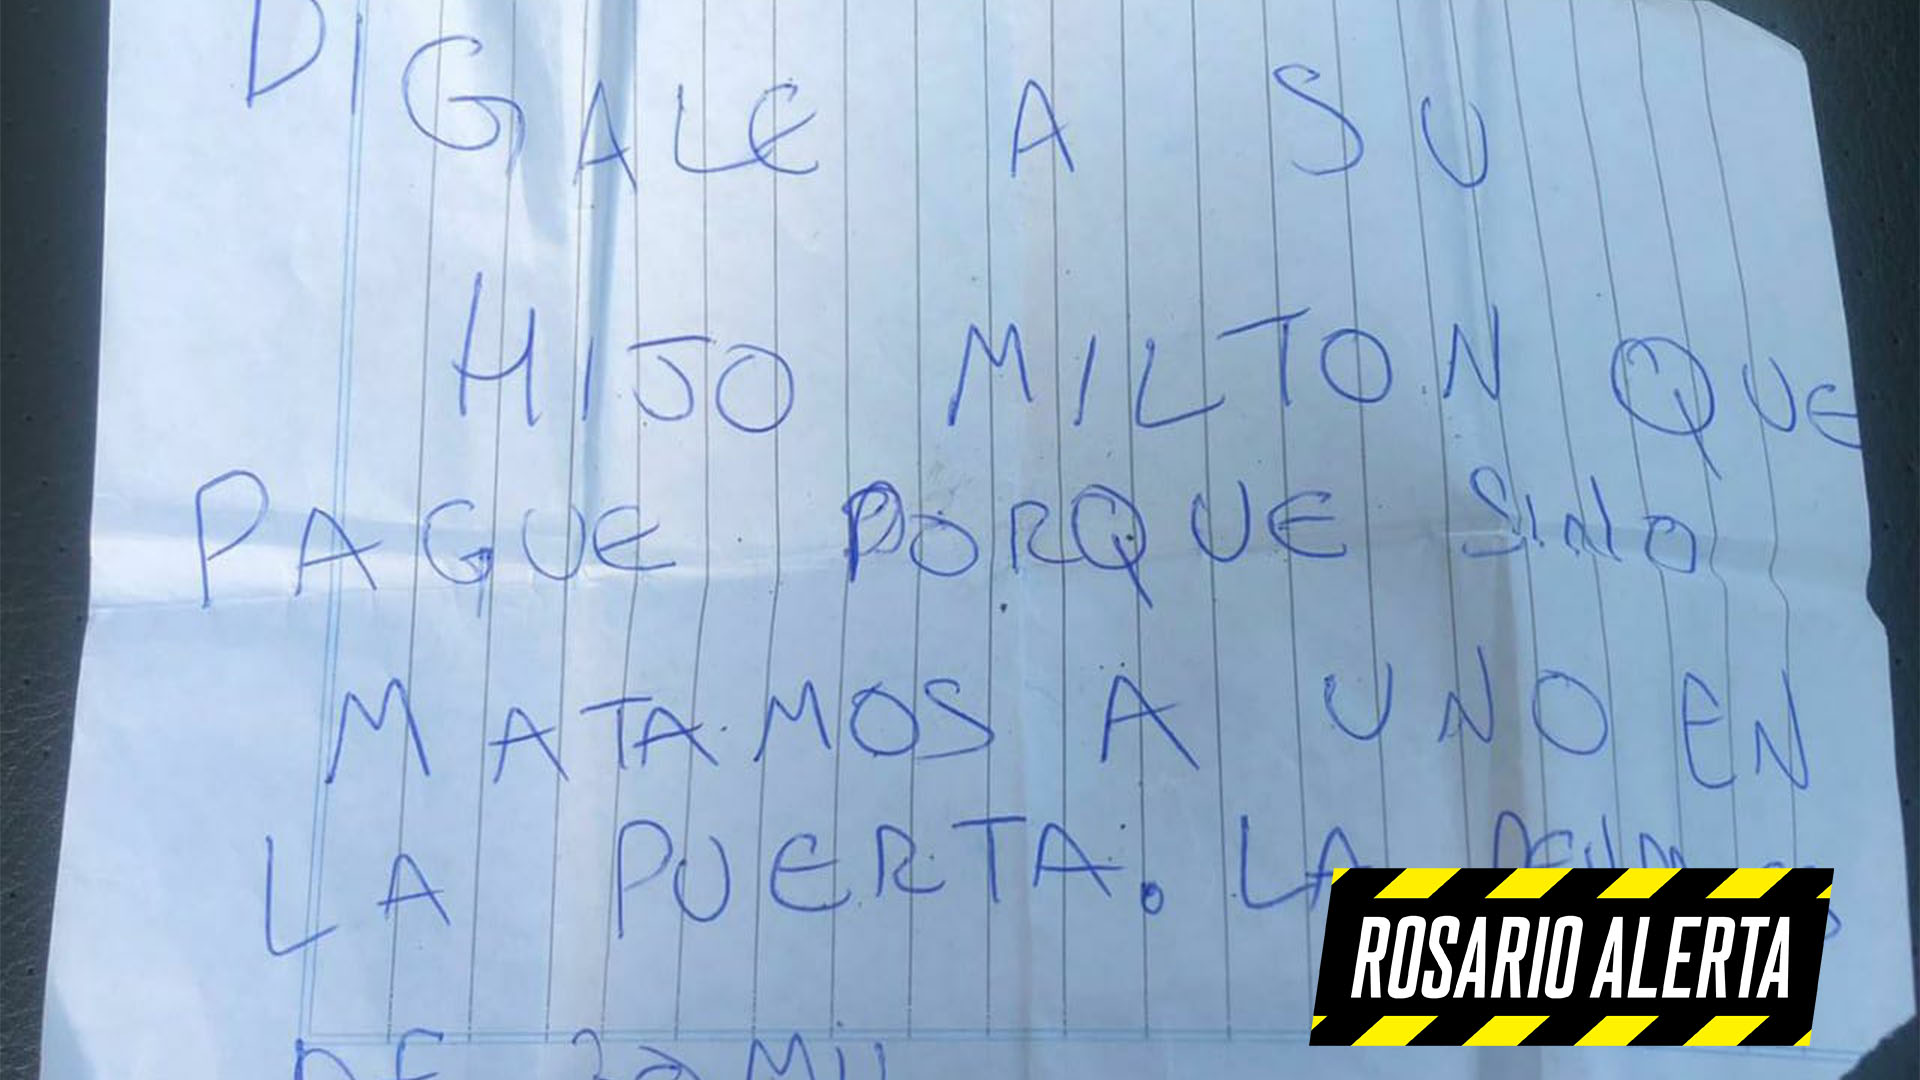 DIGALE A SU
HIJO MILTON QUE
PAGUE PORQUE SINO
MATAMOS A UNO EN
LA PUERTA. LA
DE MIL
ROSARIO ALERTA